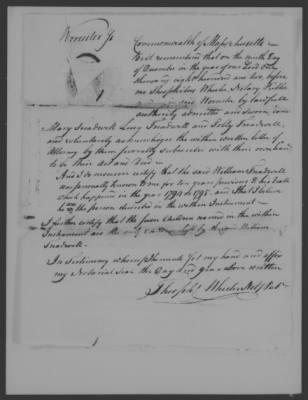 Worcester Ss
Commonwealth of Massachusetts
Be it remembered that on the ninth Day
of December in the year of our Lord One
thousand eight hundred and two, before
me Theophilus Wheeler Notary Public
Worcester by lawfull
authority admitted and Sworn, came
Mary Treadwell Lucy Treadwell and Polly Treadwell,
and voluntarily acknowledged the within written letter of
Attorney by them severally subscribed with their own hands
to be their Act and Deed —
And I do moreover certify that the said William Treadwell
was personally known to me for ten years previous to his death
which happened in the year 1794 or 1795 and I believe
he the person described in the within Instrument —
I further certify that the children named in the within
Instrument are the only left by the William
Treadwell.
In testimony whereof I hereunto set my hand and affix
my Notorial Seal the Day and year above written
Theoph. Wheeler Noty Pub